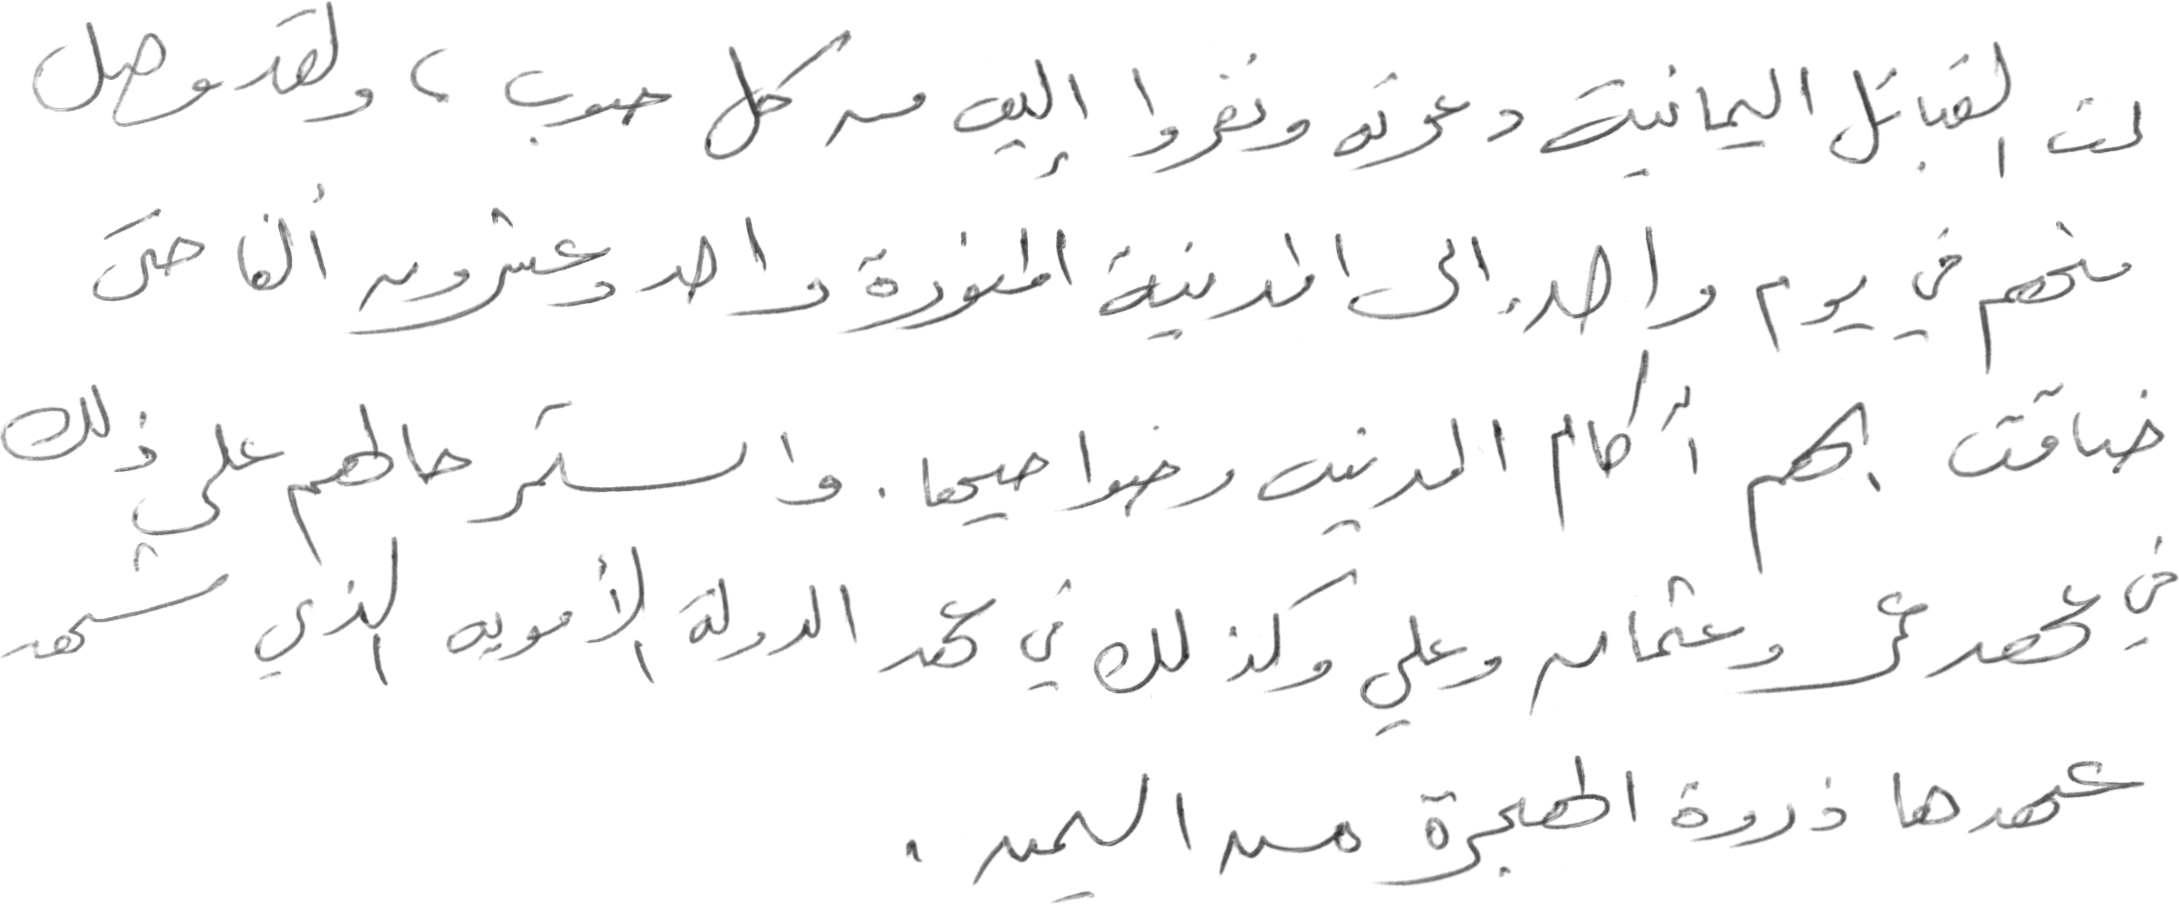 لت القبائل اليمانية دعوته ونفروا إليه من كل صوب ، ولقد وصل
منهم في يوم واحد الى المدينة المنورة واحد وعشرون ألفا حتى
ضاقت بهم آكام المدينه وضواحيها . واستمر حالهم على ذلك
في عهد عمر وعثمان وعلي وكذلك في عهد الدولة الأمويه الذي شهد
عهدها ذروة الهجرة من اليمن .